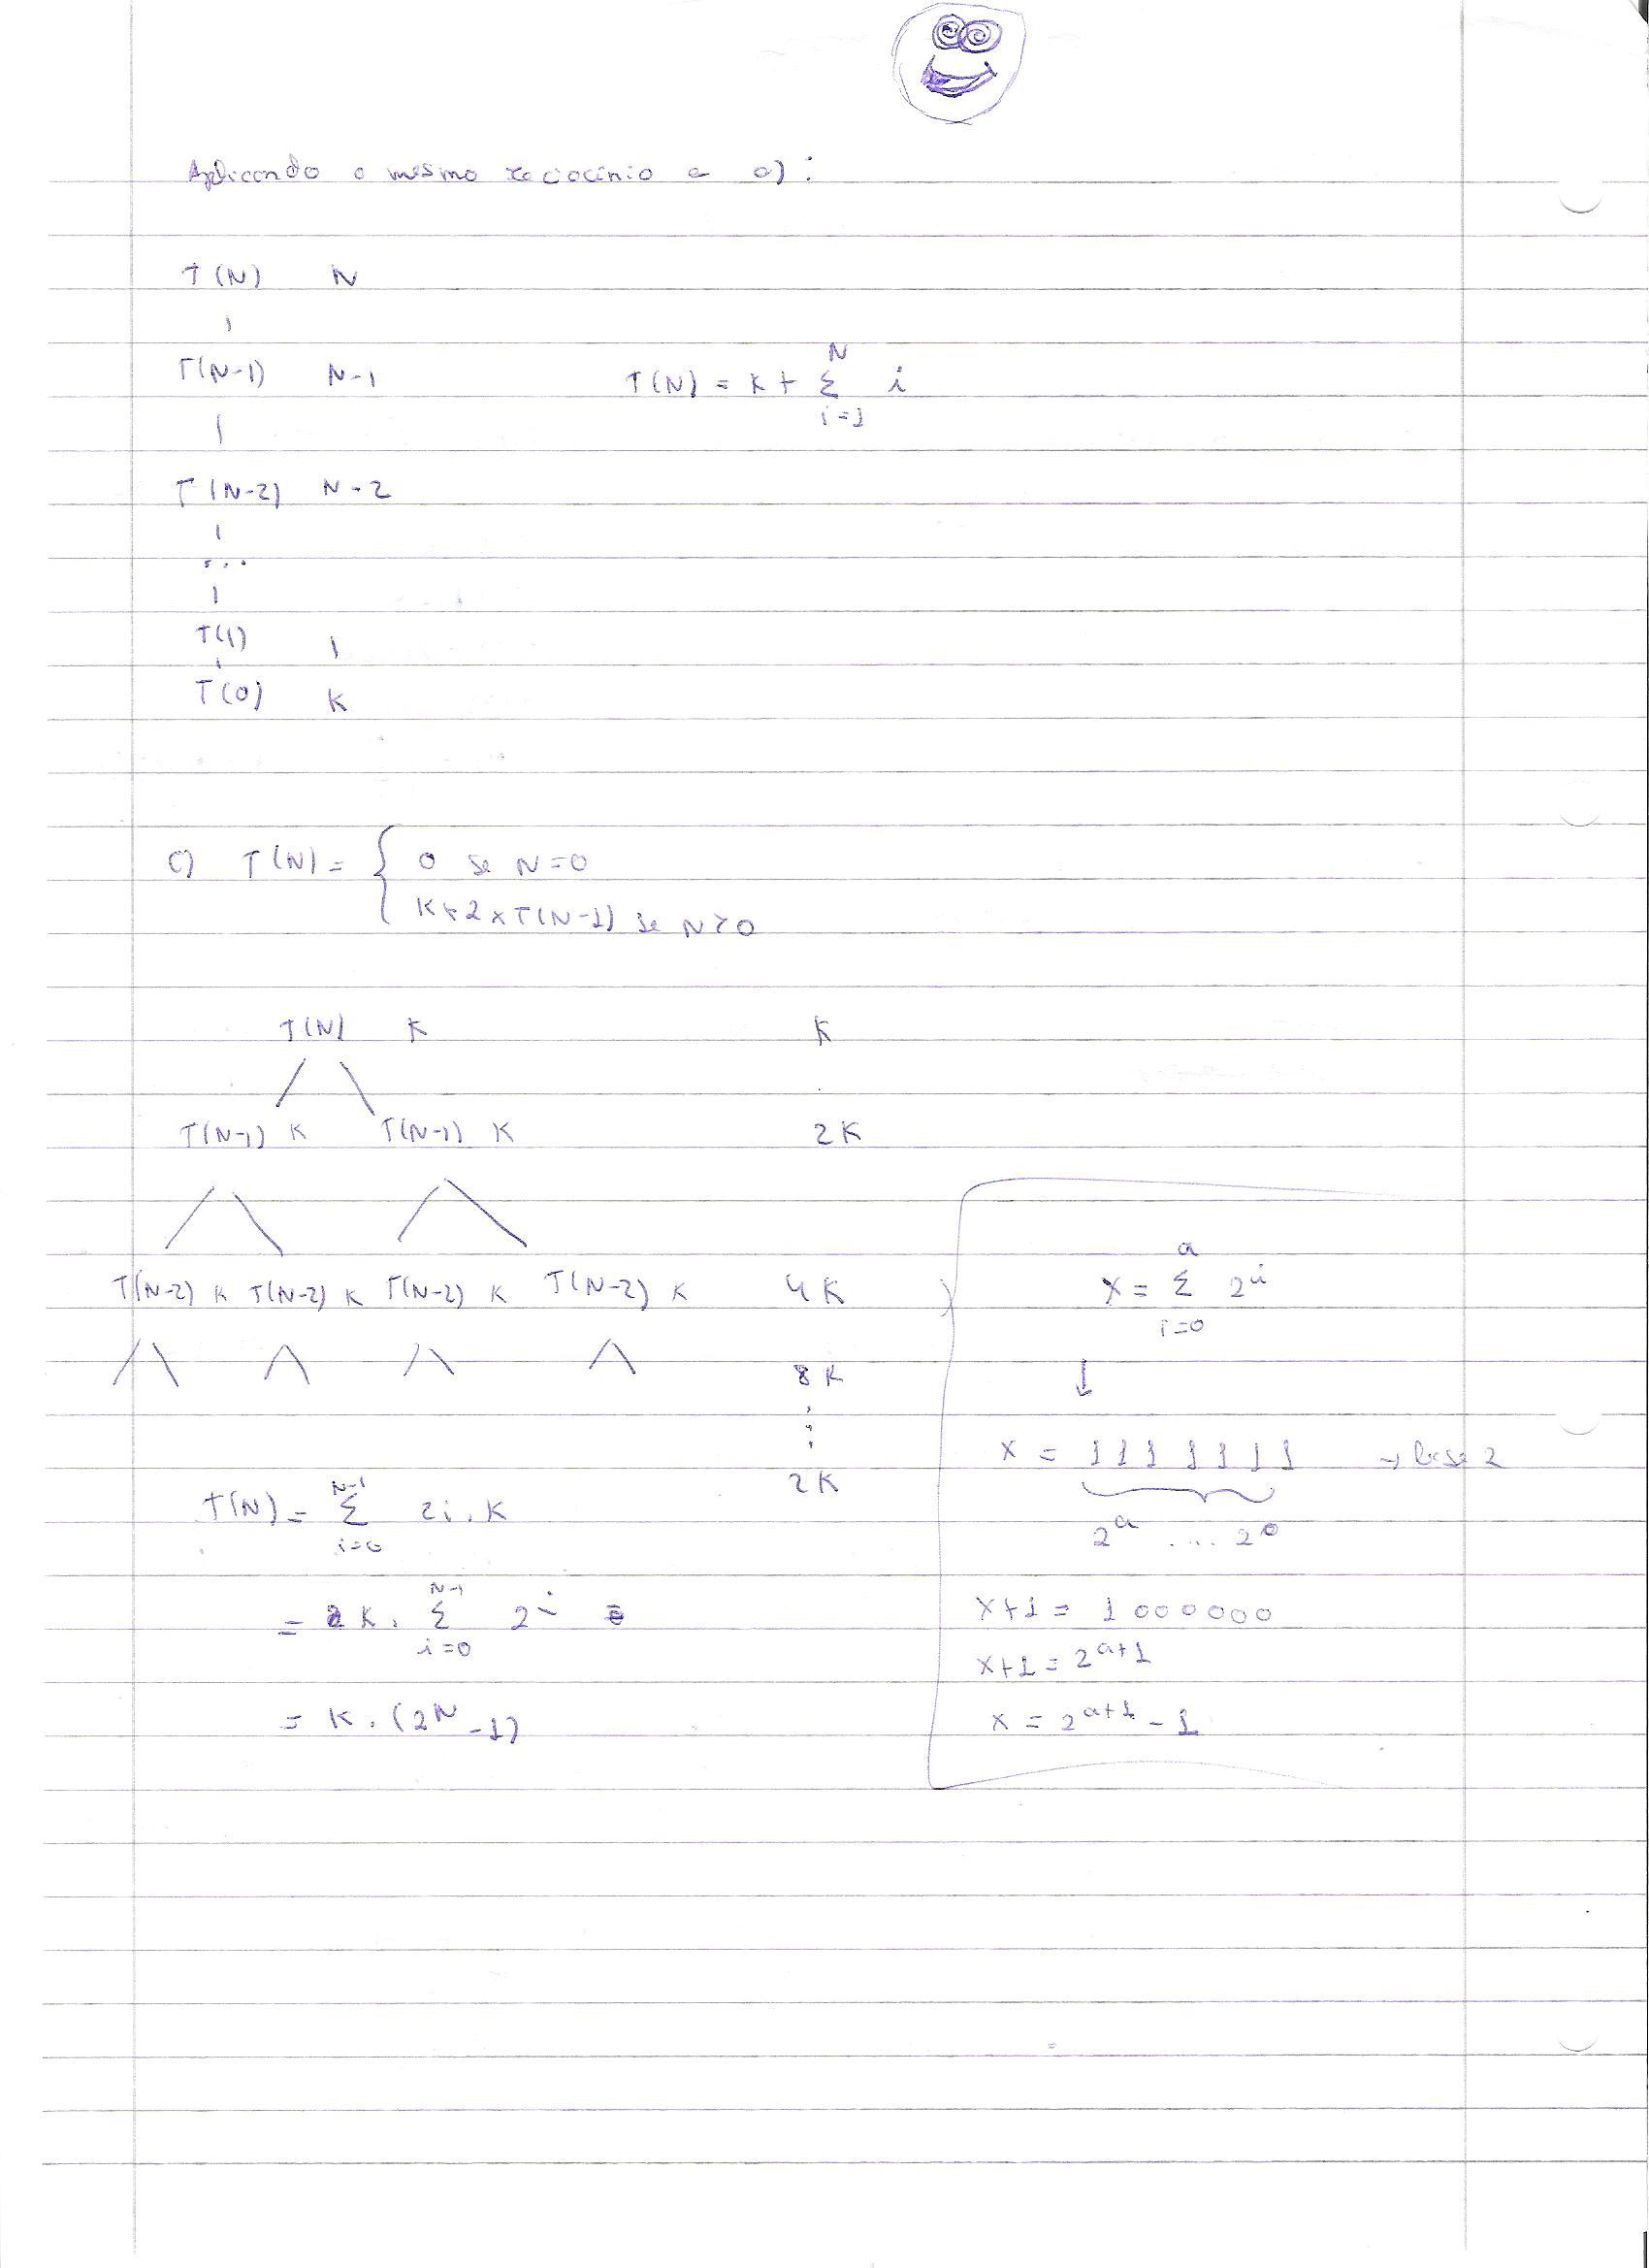 Aplicando o mesmo raciocínio a a):
T(N) N
T(N-1) N-1
T(N) = K + Σ i
N
i=1
T(N-2) N-2
...
T(1) 1
T(0) K
c) T(N) = { 0 se N=0
K+2×T(N-1) se N>0
T(N) K K
T(N-1) K T(N-1) K 2K
T(N-2) K T(N-2) K T(N-2) K T(N-2) K 4K
8K
⋮
2K
T(N) = Σ 2i.K
N-1
i=0
= K. Σ 2^i =
N-1
i=0
= K.(2^N -1)
a
x = Σ 2^i
i=0
↓
x = 1111111 → base 2
2^a .... 2^0
x+1 = 1 000000
x+1 = 2^a+1
x = 2^a+1 - 1